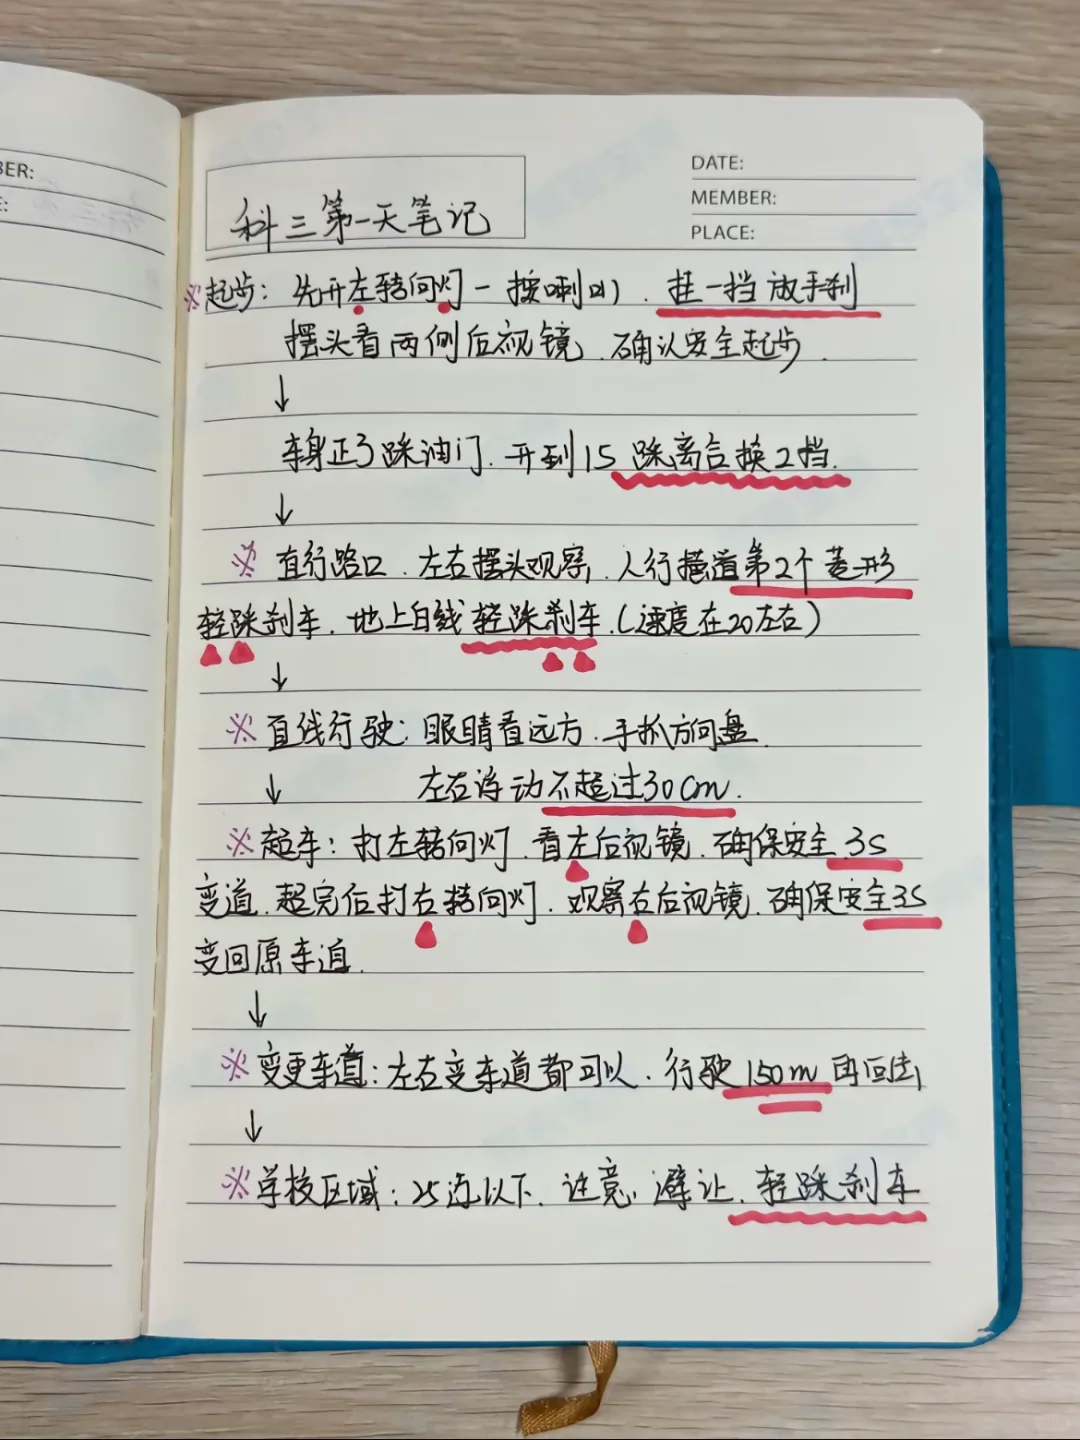 BER:
E:
DATE:
MEMBER:
PLACE:
科三第一天笔记
※起步：先开左转向灯－按喇叭、挂一挡放手刹
摆头看两侧后视镜、确认安全起步.
↓
车身正了踩油门、开到15踩离合换2挡.
↓
※ 直行路口、左右摆头观察，人行横道第2个菱形
轻踩刹车、地上白线轻踩刹车、(速度在20左右)
↓
※ 直线行驶：眼睛看远方、手抓方向盘、
↓ 左右浮动不超过30cm.
※超车：打左转向灯、看左后视镜、确保安全、3S
变道、超完后打右转向灯、观察右后视镜、确保安全3S
变回原车道、
↓
※变更车道：左右变车道都可以、行驶150m再回去
↓
※学校区域：25迈以下、注意、避让、轻踩刹车